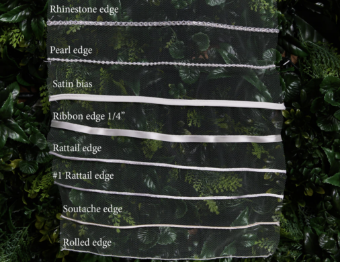 Rhinestone edge
Pearl edge
Satin bias
Ribbon edge 1/4"
Rattail edge
#1 Rattail edge
Soutache edge
Rolled edge